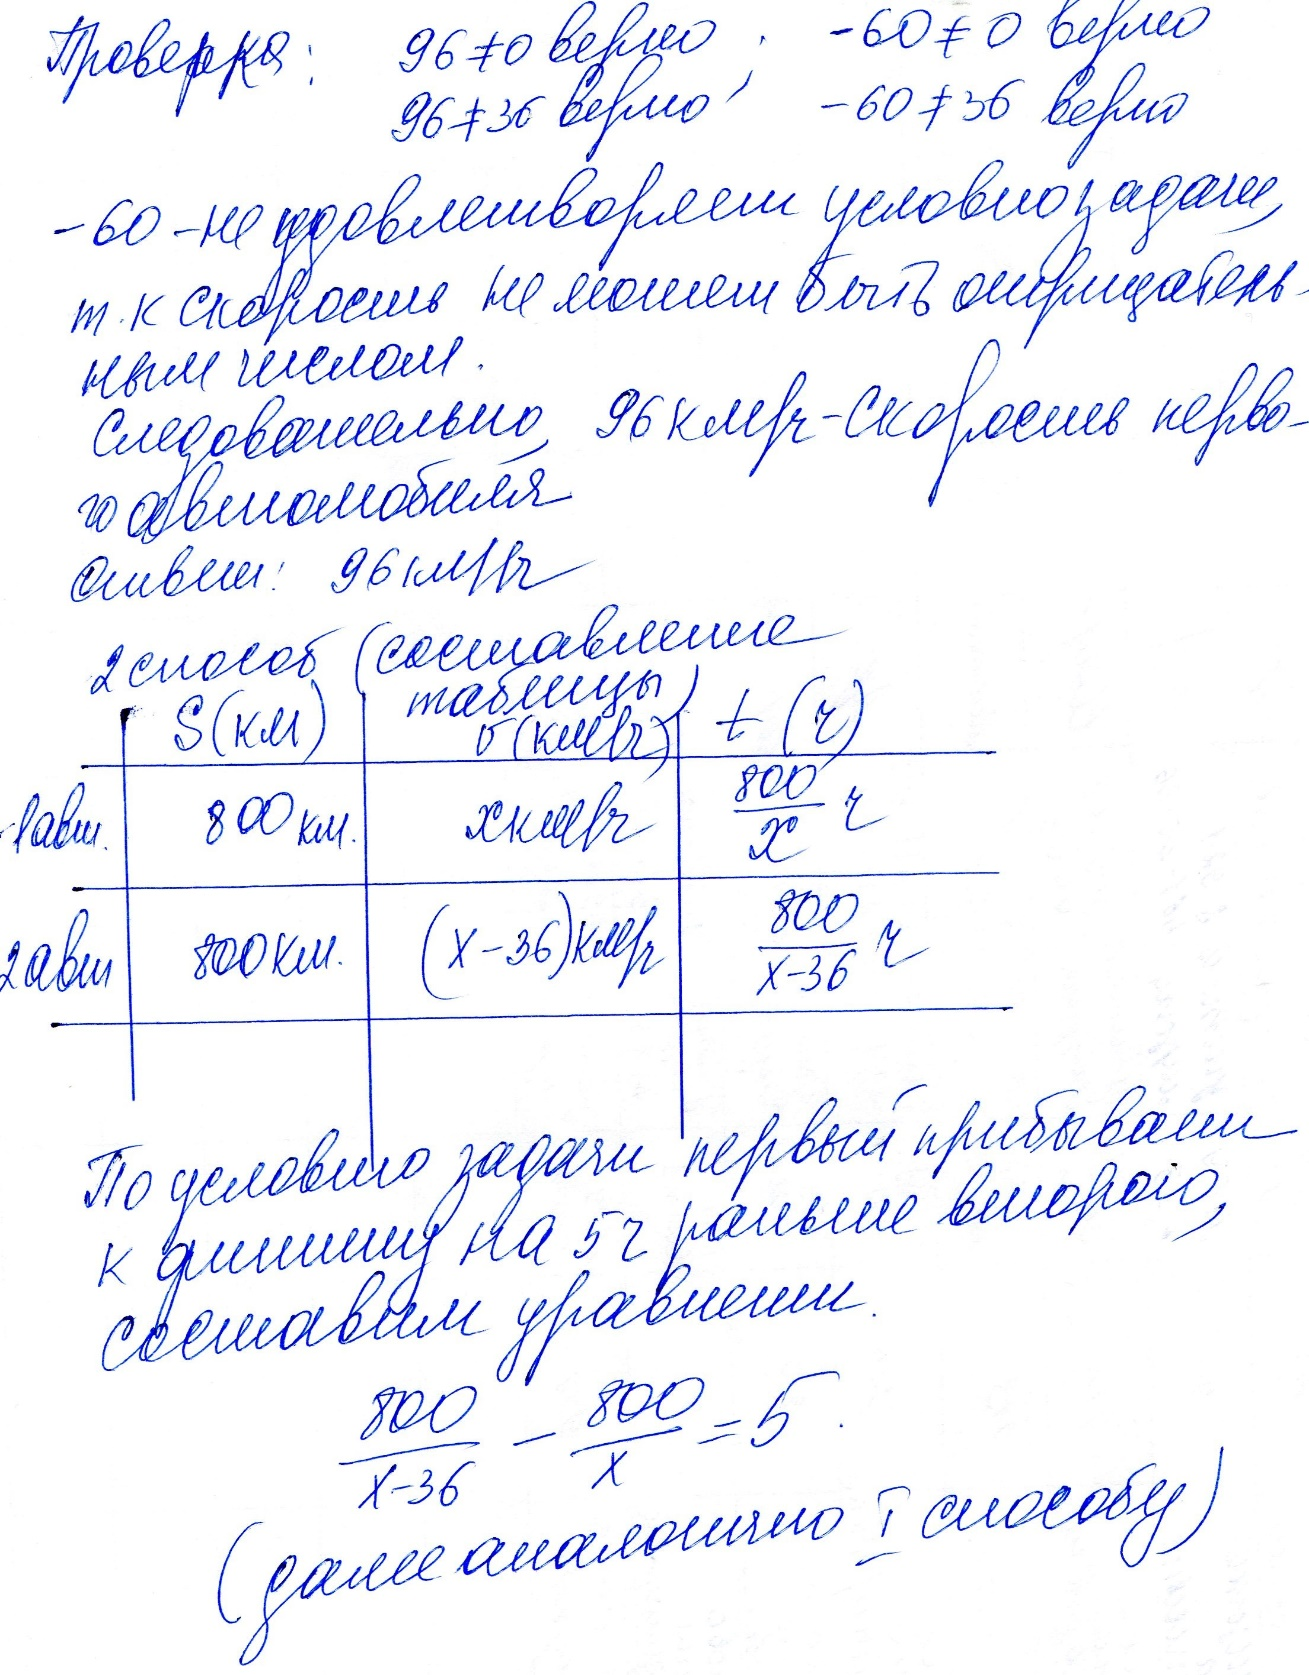 Проверка: 96≠0 верно, -60≠0 верно
96≠36 верно, -60≠36 верно
-60 -не удовлетворяет условию задачи,
т.к скорость не может быть отрицатель-
ным числом.
Следовательно, 96 км/ч-скорость перво-
го автомобиля
Ответ: 96 км/ч
2 способ (составление
таблицы)
S(км) v(км/ч) t (ч)
1авт. 800 км. x км/ч 800/x ч
2авт 800 км. (x-36) км/ч 800/x-36 ч
По условию задачи первый прибывает
к финишу на 5ч раньше второго,
составим уравнение.
800/x-36 - 800/x = 5.
(далее аналогично I способу)